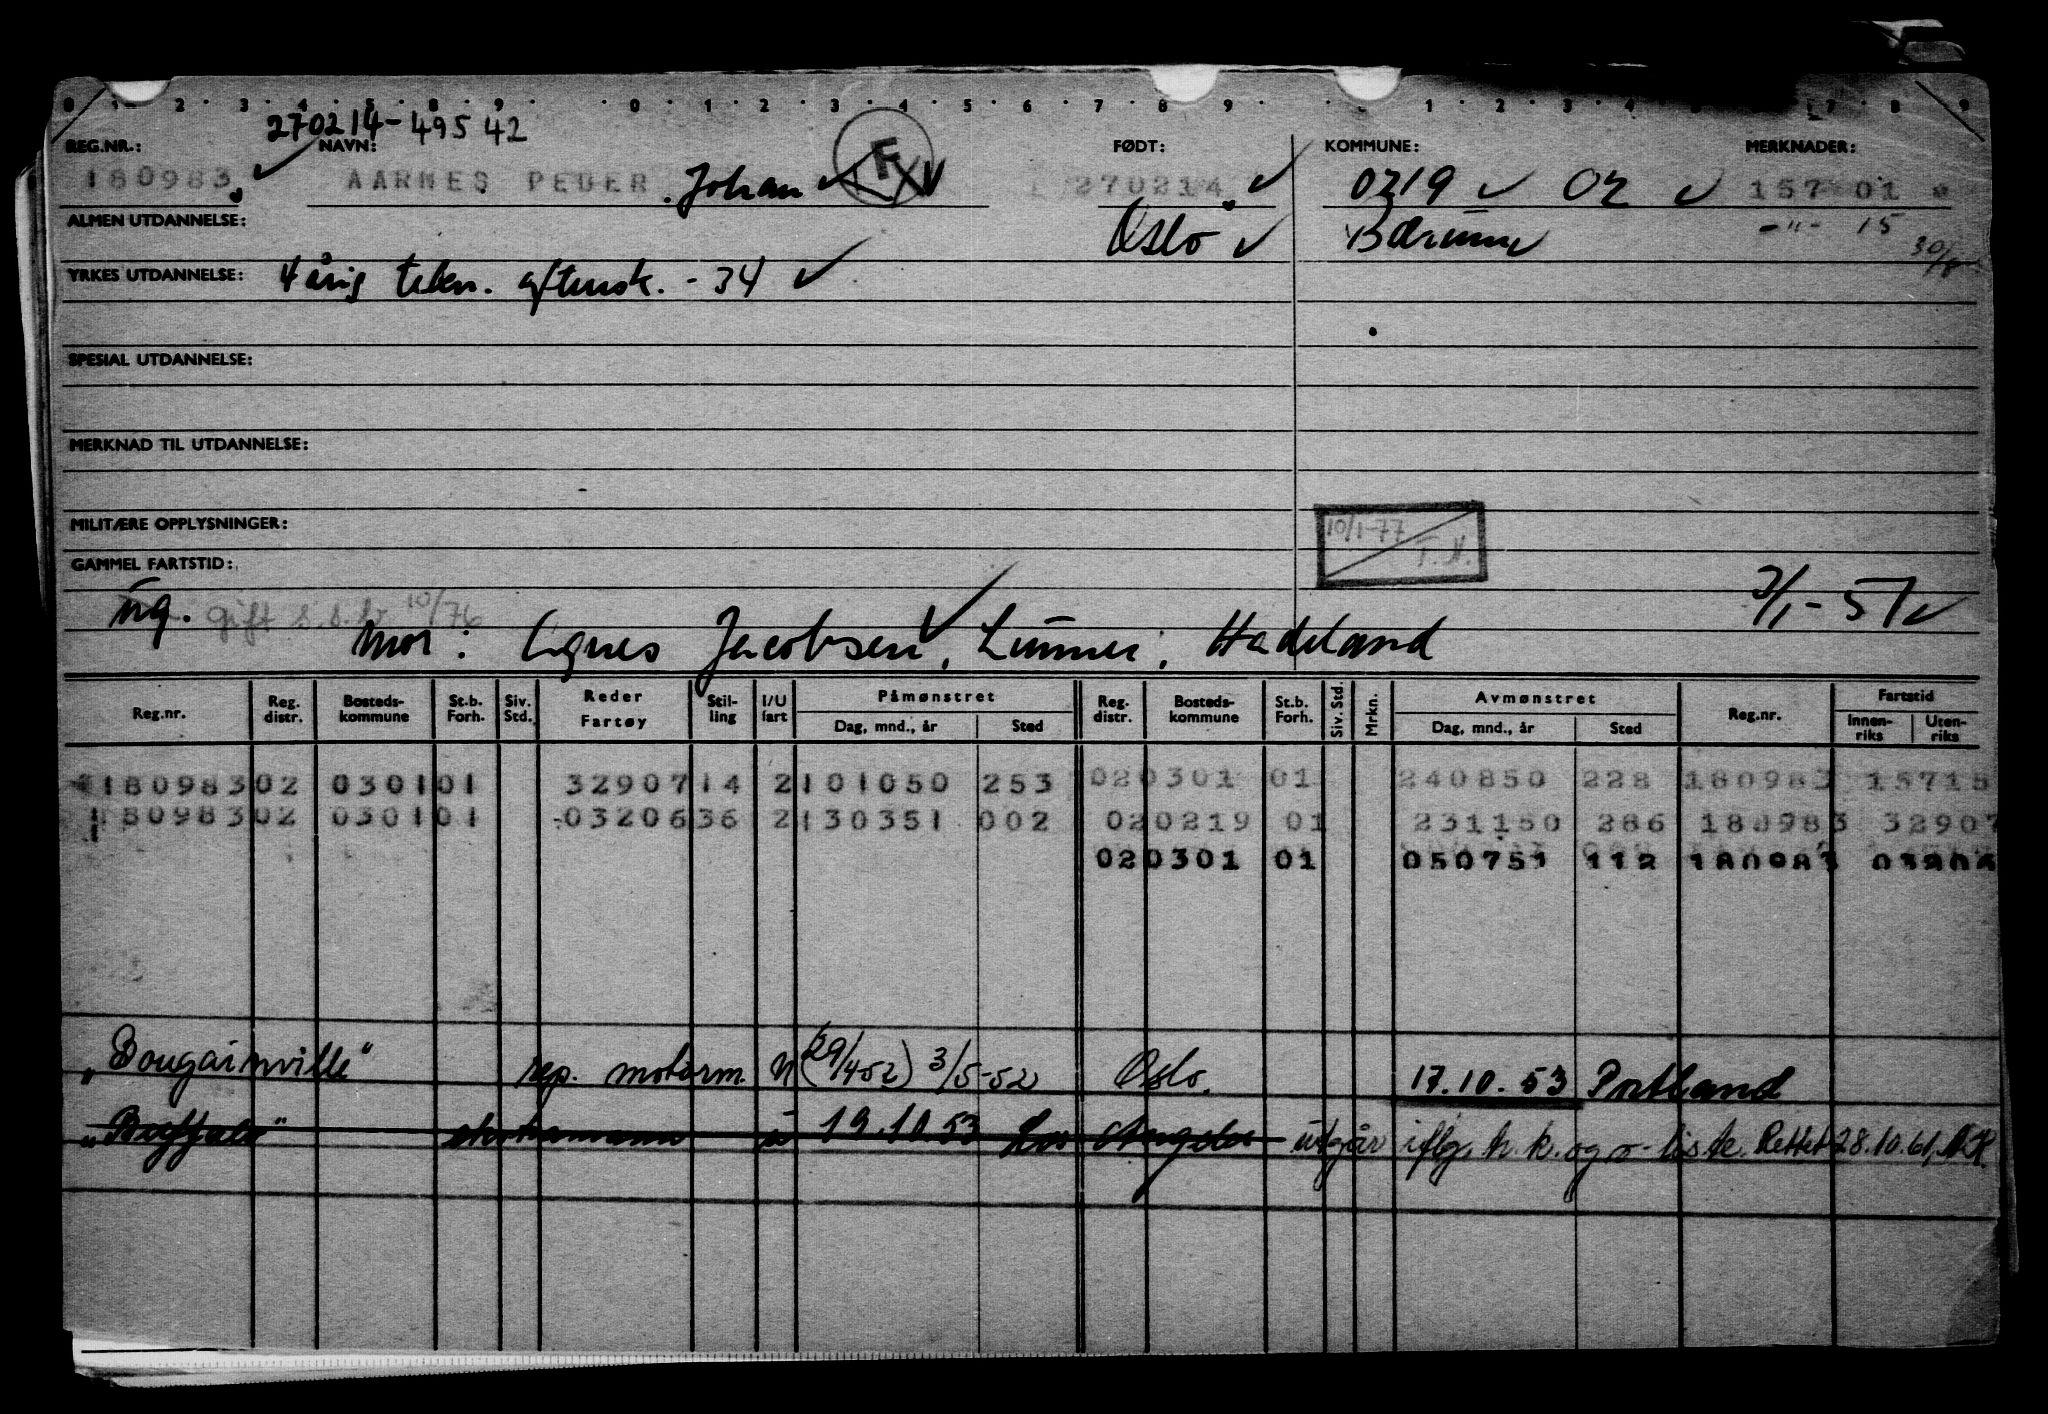 0 1 2 3 4 5 8 9 0 1 2 3 4 5 6 7 8 9 1 2 3 4 7 8 9
270214-49542
REG.NR.: NAVN: F FØDT: KOMMUNE: MERKNADER:
180983 AARNES PEDER Johan 270214 0219 02 157 01
ALMEN UTDANNELSE: Oslo Bærum -"- 15
30/8
YRKES UTDANNELSE: 4 årig tekn. aftensk. - 34
SPESIAL UTDANNELSE:
MERKNAD TIL UTDANNELSE:
MILITÆRE OPPLYSNINGER: 10/1-77
T.N.
GAMMEL FARTSTID:
ug. gift s.s.b 10/76 3/1-51
Mor: Agnes Jacobsen, Lunner, Hadeland
Reg.nr. Reg. distr. Bosteds-kommune St.b. Forh. Siv. Std. Reder Fartøy Stil-ling I/U fart Påmønstret Dag, mnd., år Sted Reg. distr. Bosteds-kommune St.b. Forh. Siv. Std. Mrkn. Avmønstret Dag, mnd., år Sted Reg.nr. Fartstid Innen-riks Uten-riks
180983 02 0301 01 32907 14 2 101050 253 02 0301 01 240850 228 180983 15718
180983 02 0301 01 03206 36 2 130351 002 02 0219 01 231150 286 180983 32907
02 0301 01 050751 112 180983 03206
"Bougainville" rep. motorm. U (29/4-52) 3/5-52 Oslo. 17.10.53 Portland
"Buffalo" u 19.10.53 Los Angelos utgår iflg. h.k. og o-liste. Rettet 28.10.61,